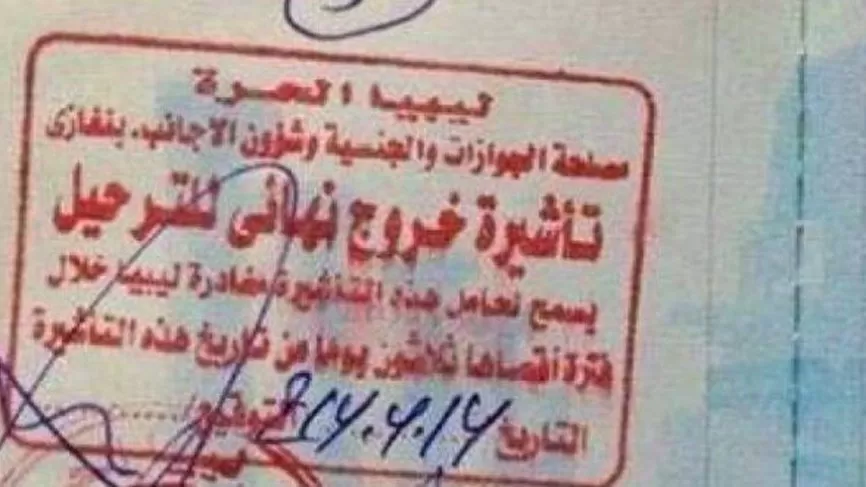 ليبيا الحرة
مصلحة الجوازات والجنسية وشؤون الاجانب. بنغازى
تأشيرة خروج نهائى للترحيل
يسمح لحامل هذه التأشيرة مغادرة ليبيا خلال
فترة أقصاها ثلاثون يوما من تاريخ هذه التأشيرة
التاريخ التوقيع